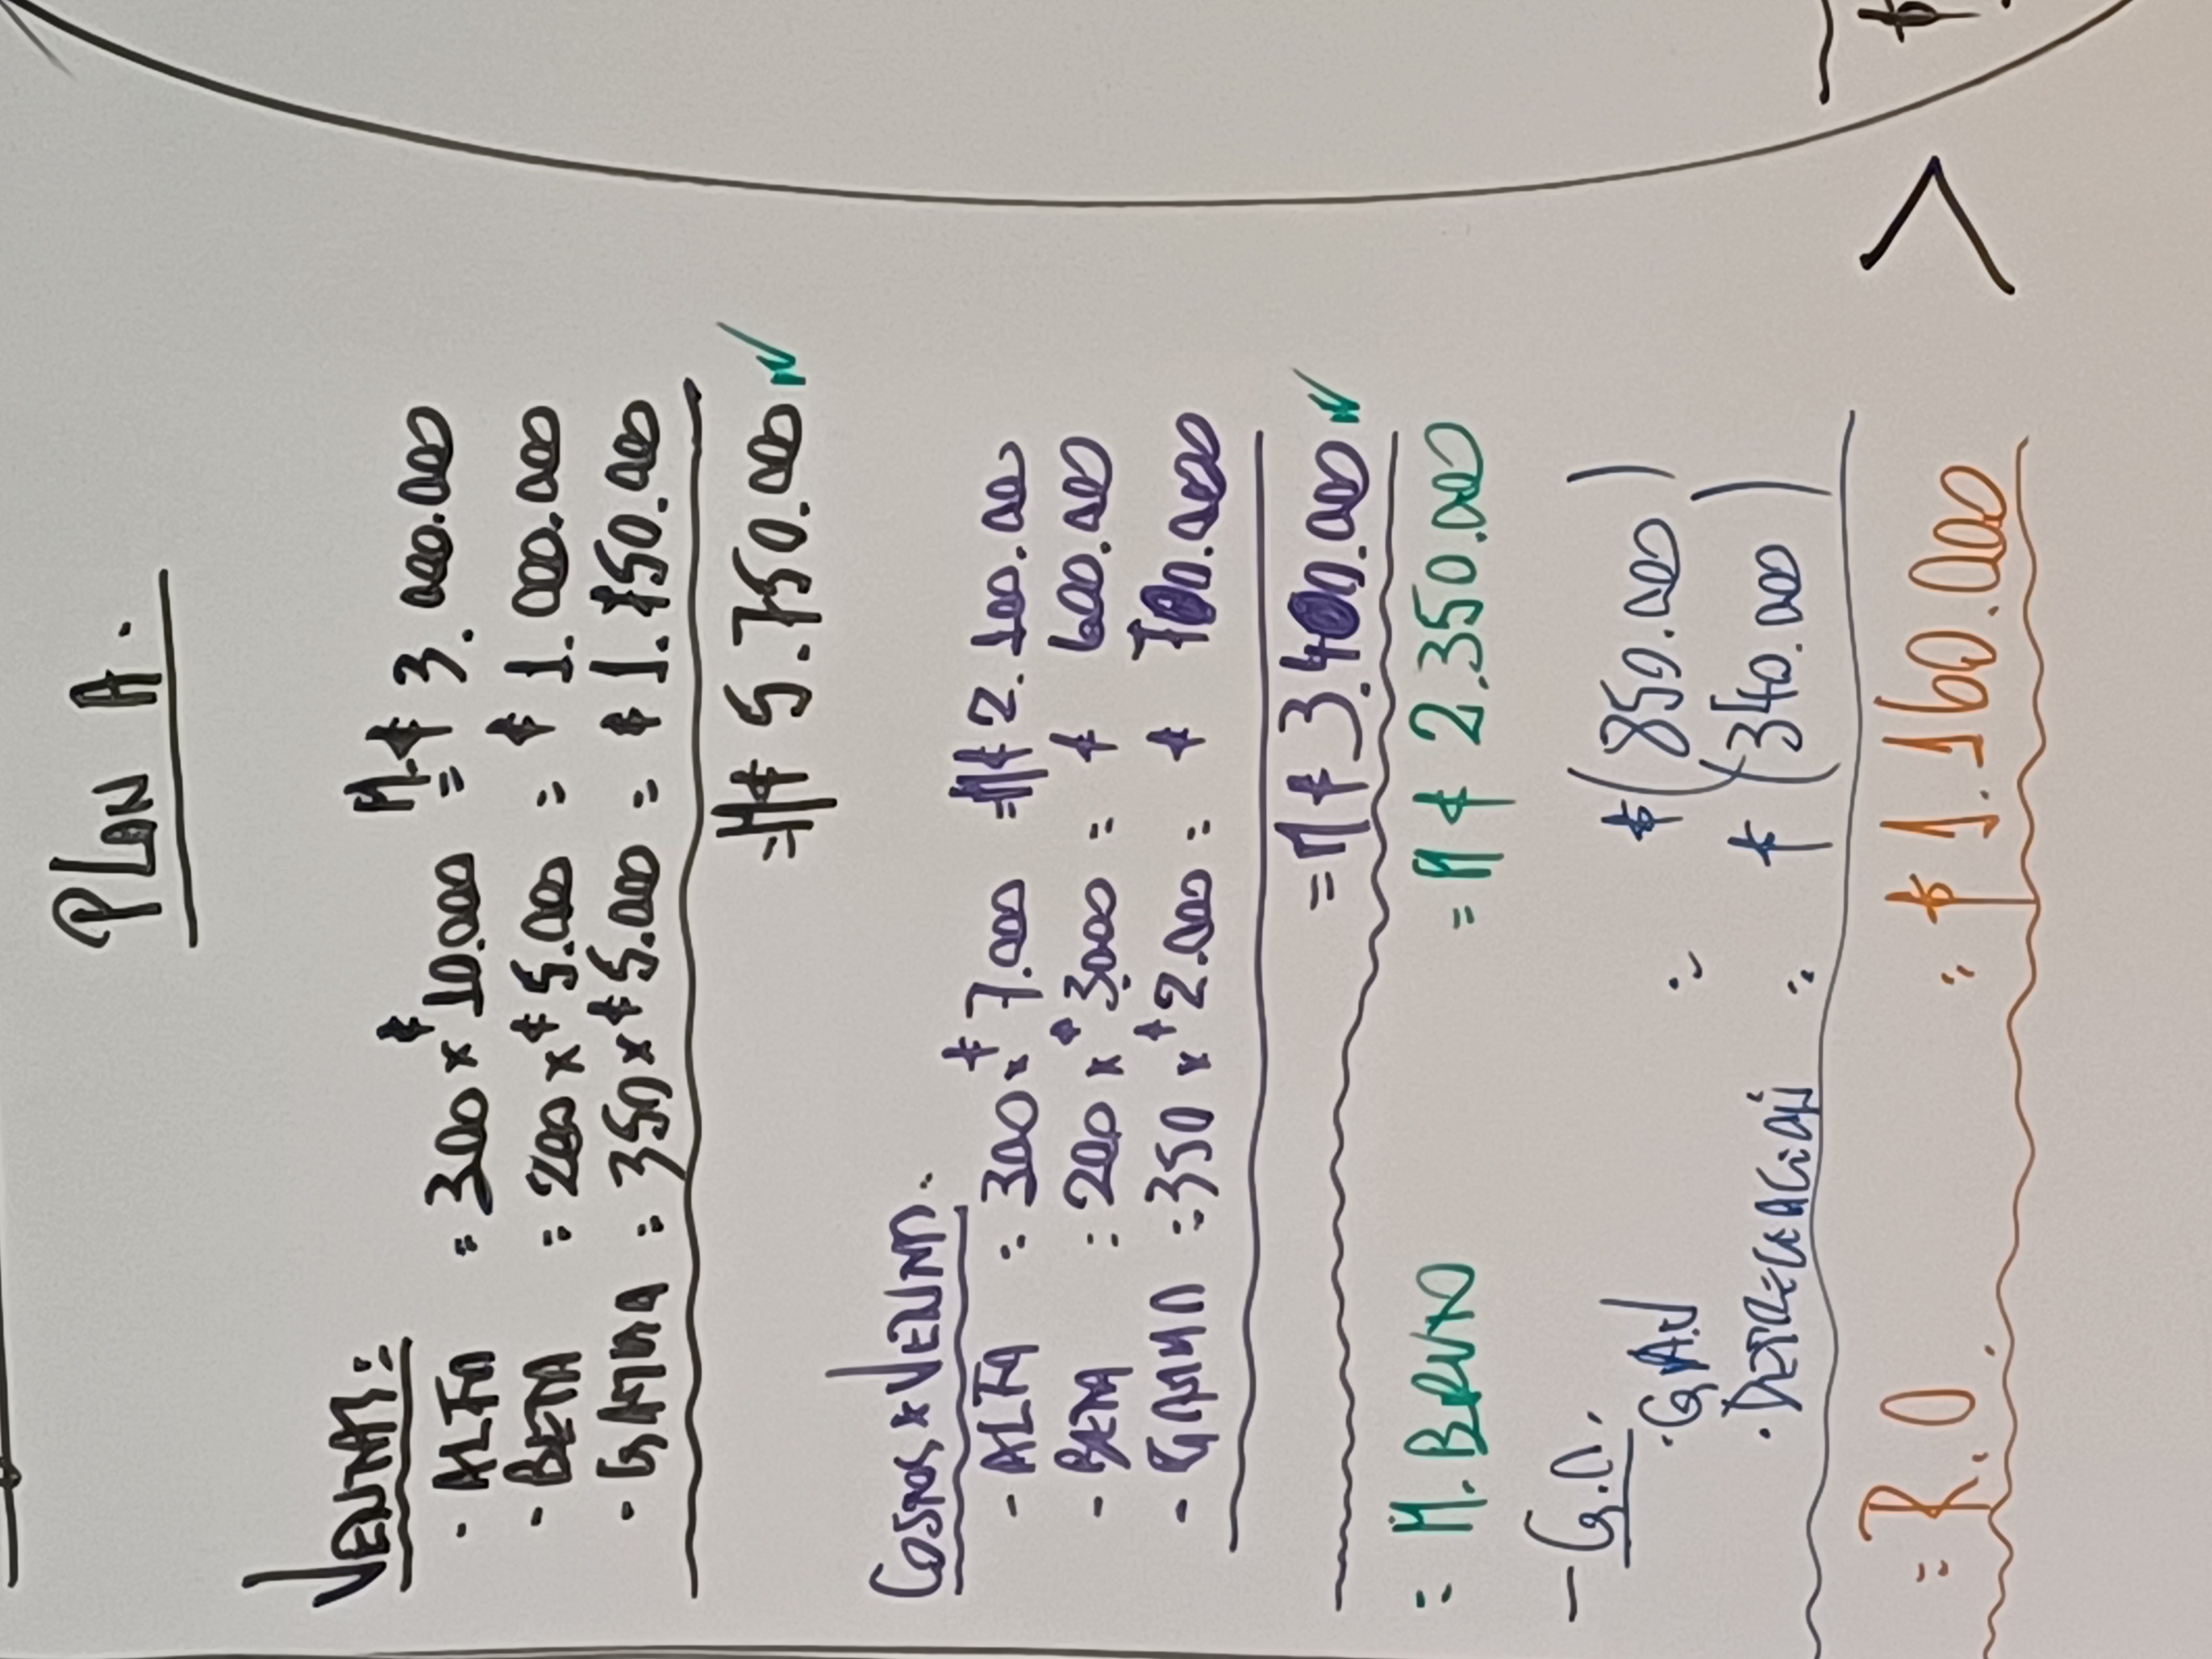 PLAN A.
VENTAS:
- ALFA = 300 x $10.000 = M.$ 3.000.000
- BETA = 200 x $ 5.000 = $ 1.000.000
- GAMMA = 350 x $ 5.000 = $ 1.750.000
= M$ 5.750.000 ✓
COSTOS x VENTA.
- ALFA = 300 x $ 7.000 = M$ 2.100.000
- BETA = 200 x $ 3.000 = $ 600.000
- GAMMA = 350 x $ 2.000 = $ 700.000
= M $ 3.400.000 ✓
= M. BRUTO = M $ 2.350.000
- G.O.
· G.A.V = $ (850.000)
· DEPRECIACION = $ (340.000)
= R.O. = $ 1.160.000 > $